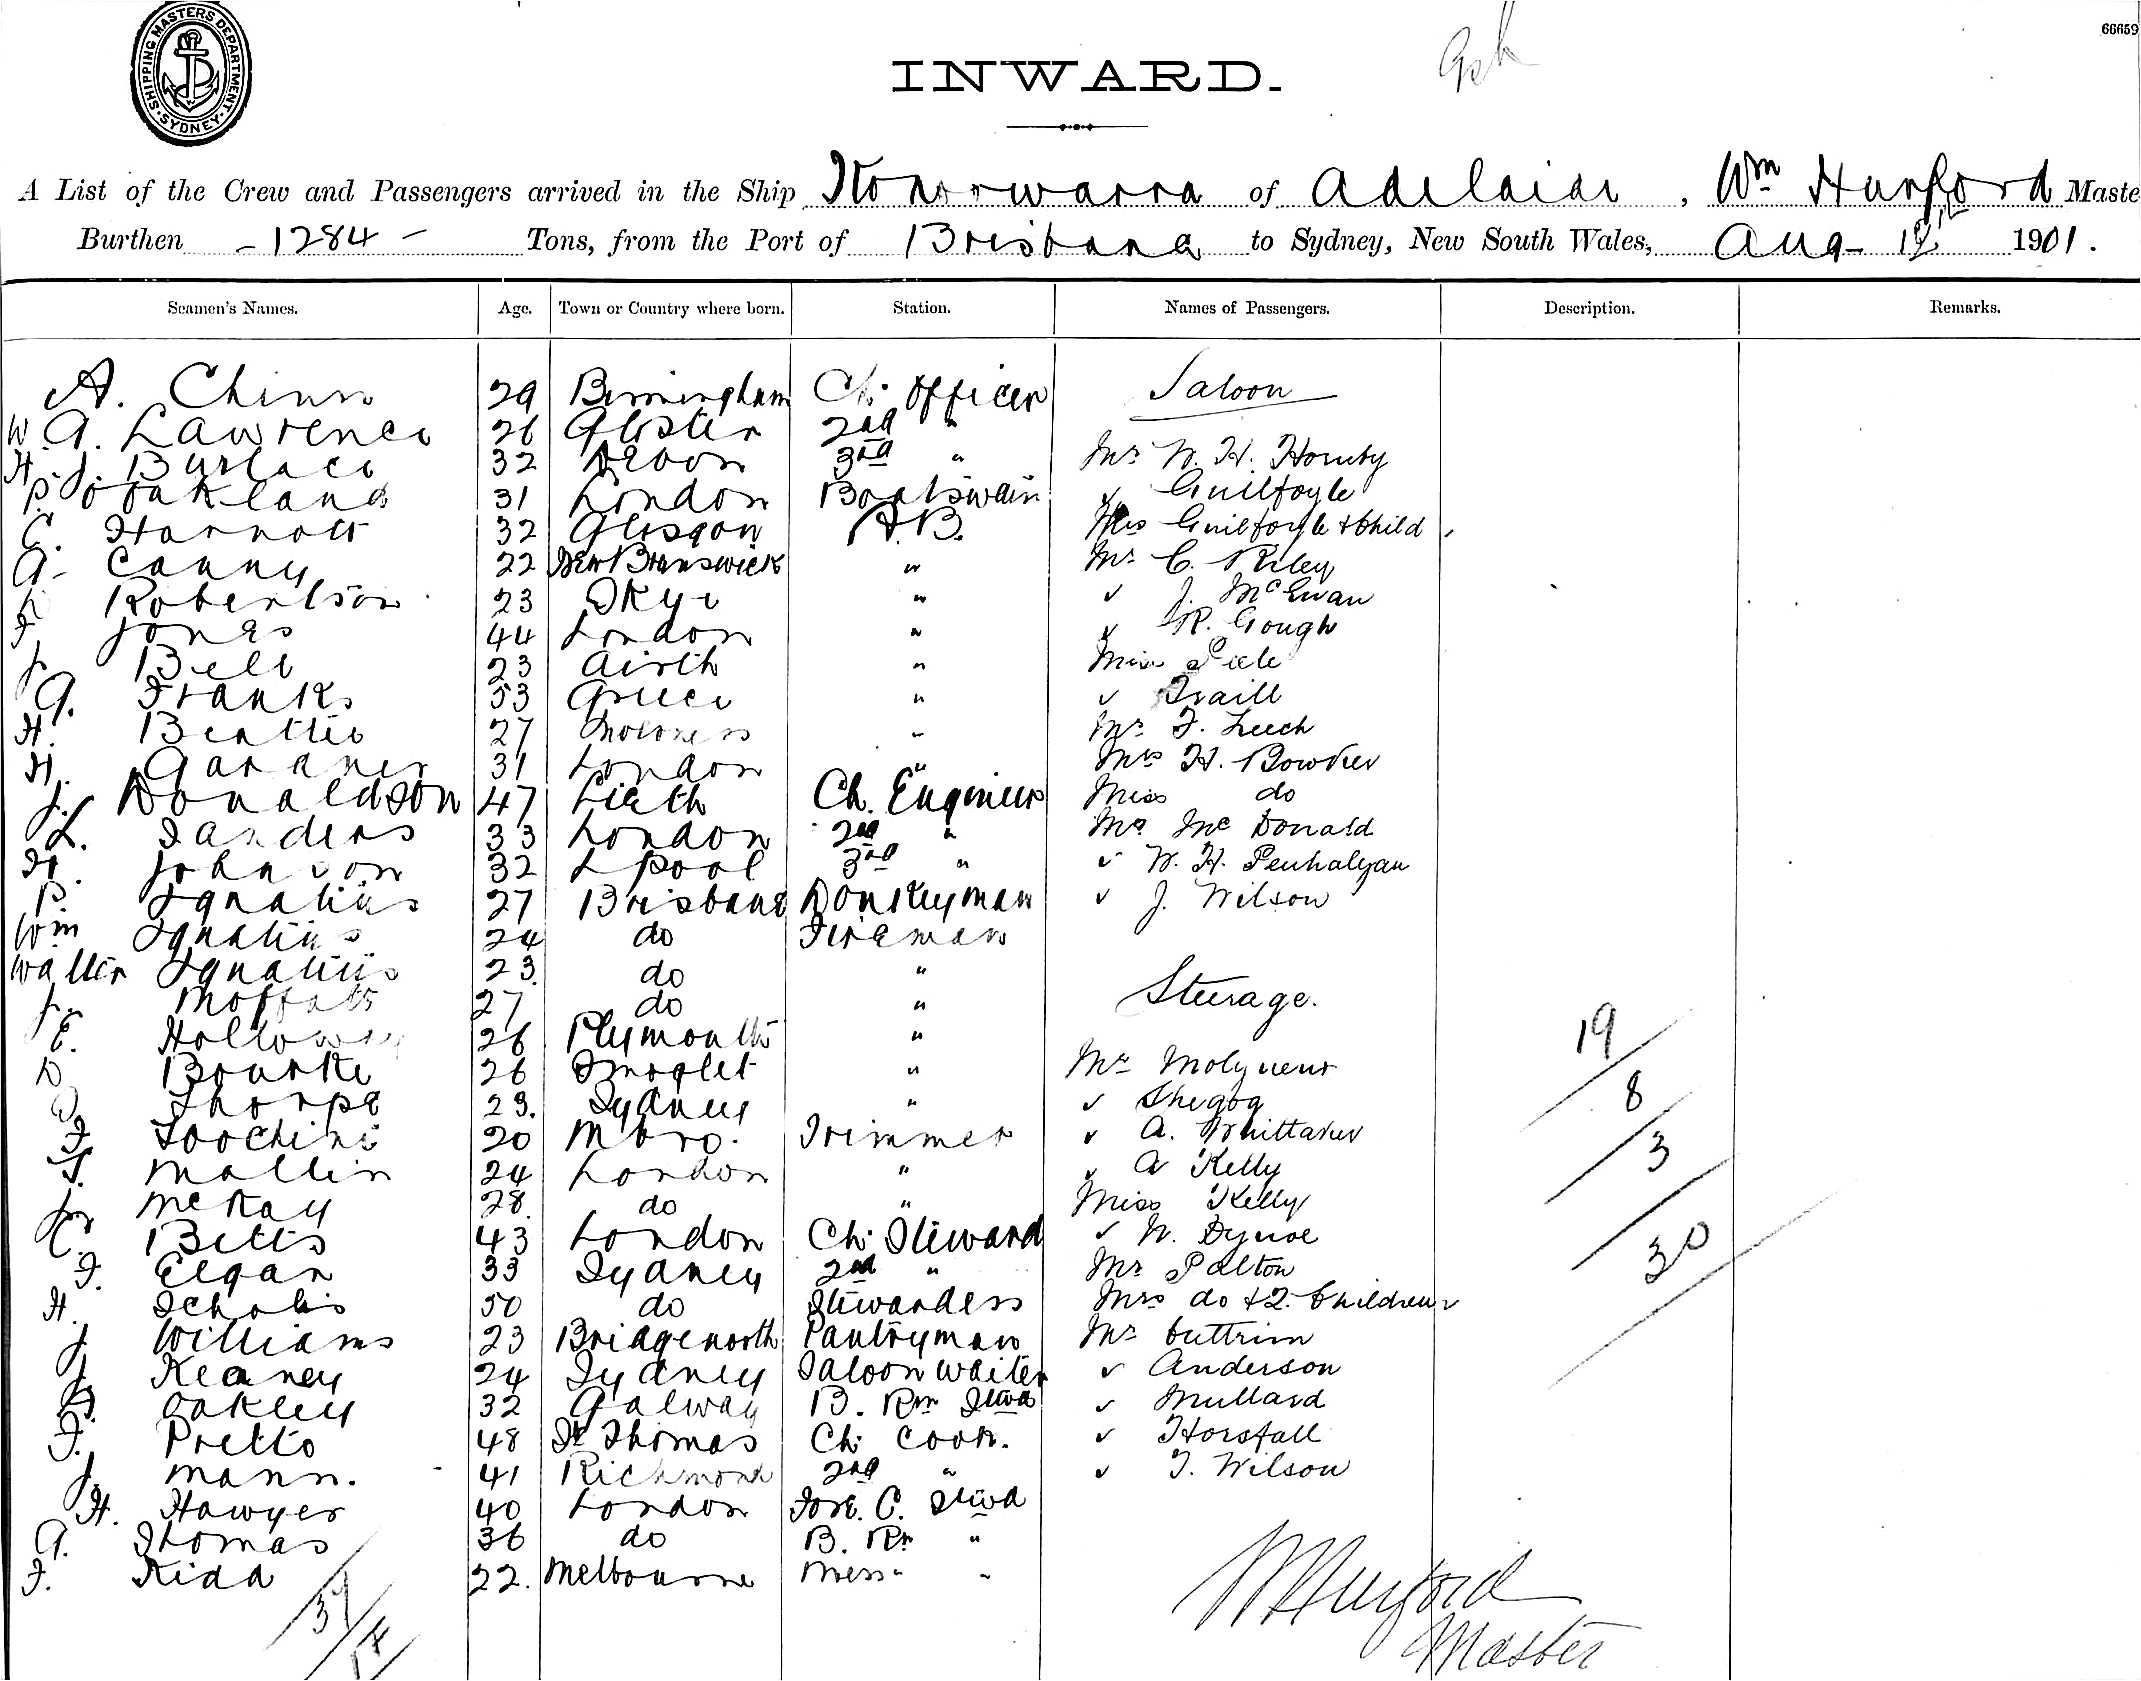 SHIPPING MASTERS DEPARTMENT SYDNEY
66659
INWARD.
A List of the Crew and Passengers arrived in the Ship Konoowarra of Adelaide, Wm Hurford Maste
Burthen - 1284 - Tons, from the Port of Brisbane to Sydney, New South Wales, Aug- 12 1901.
Seamen's Names. Age. Town or Country where born. Station. Names of Passengers. Description. Remarks.
A. Chinn 29 Birmingham Ch. Officer Saloon
W. A. Lawrence 26 Gloster 2nd "
H. J. Burlace 32 Devon 3rd " Mr W. H. Hornby
P. Oakland 31 London Boatswain " Guilfoyle
C. Harnott 32 Glasgow A.B. Mrs Guilfoyle & Child
A. Canny 22 New Brunswick " Mr C. Riley
Robertson 23 Skye " " J. McEwan
J. Jones 44 London " " R. Gough
J. Bell 23 Airth " Miss
A. Franks 53 Greece " " Traill
H. Beattie 27 " Mr F. Leech
H. Gardner 31 London " Mrs H. Bowker
J. Donaldson 47 Lieth Ch. Engineer Miss do
L. Sanders 33 London 2nd " Mr Mc Donald
H. Johnson 32 Lpool 3rd " " W. H. Penhalegan
P. Ignatius 27 Brisbane Donkeyman " J. Wilson
Wm Ignatius 24 do Fireman
Walter Ignatius 23 do "
J. Moffatt 27 do " Steerage.
E. Holloway 26 Plymouth " 19
D Bourke 26 " Mr Molyneux
Thorpe 23. Sydney " " Shegog 8
F. 20 Mbro. Trimmer " A. Whittaker
S. Mallin 24 London " " A Kelly 3
J McKay 28. do " Miss Kelly
C. Betts 43 London Ch. Steward " N.
F. Elgar 33 Sydney 2nd " Mr Patton 30
H. Scholes 50 do Stewardess Mrs do & 2. Children
J Williams 23 Bridgenorth Pantryman Mr Cuttrim
J Keaney 24 Sydney Saloon Waiter " Anderson
B. Oakley 32 Galway B. Rm Stwd " Mullard
F. Pretto 48 St Thomas Ch. Cook. " Horsfall
J. Mann. 41 Richmond 2nd " " T. Wilson
H. Hawyes 40 London Fore. C. Stwd
A. Thomas 36 do B. Rm "
F. Kidd 22. Melbourne Mess " "
W Hurford
Master